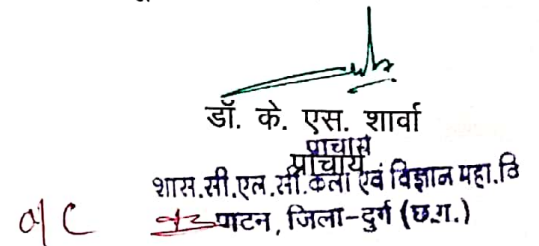 डॉ. के. एस. शार्वा
प्राचार्य
प्राचार्य
शास.सी.एल.सी.कला एवं विज्ञान महा.वि
पाटन, जिला-दुर्ग (छ.ग.)